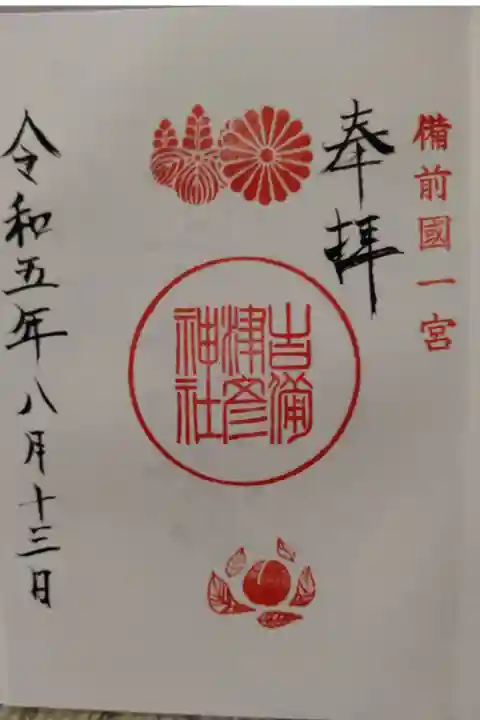 備前國一宮
奉拝
吉備
津彦
神社
令和五年八月十三日